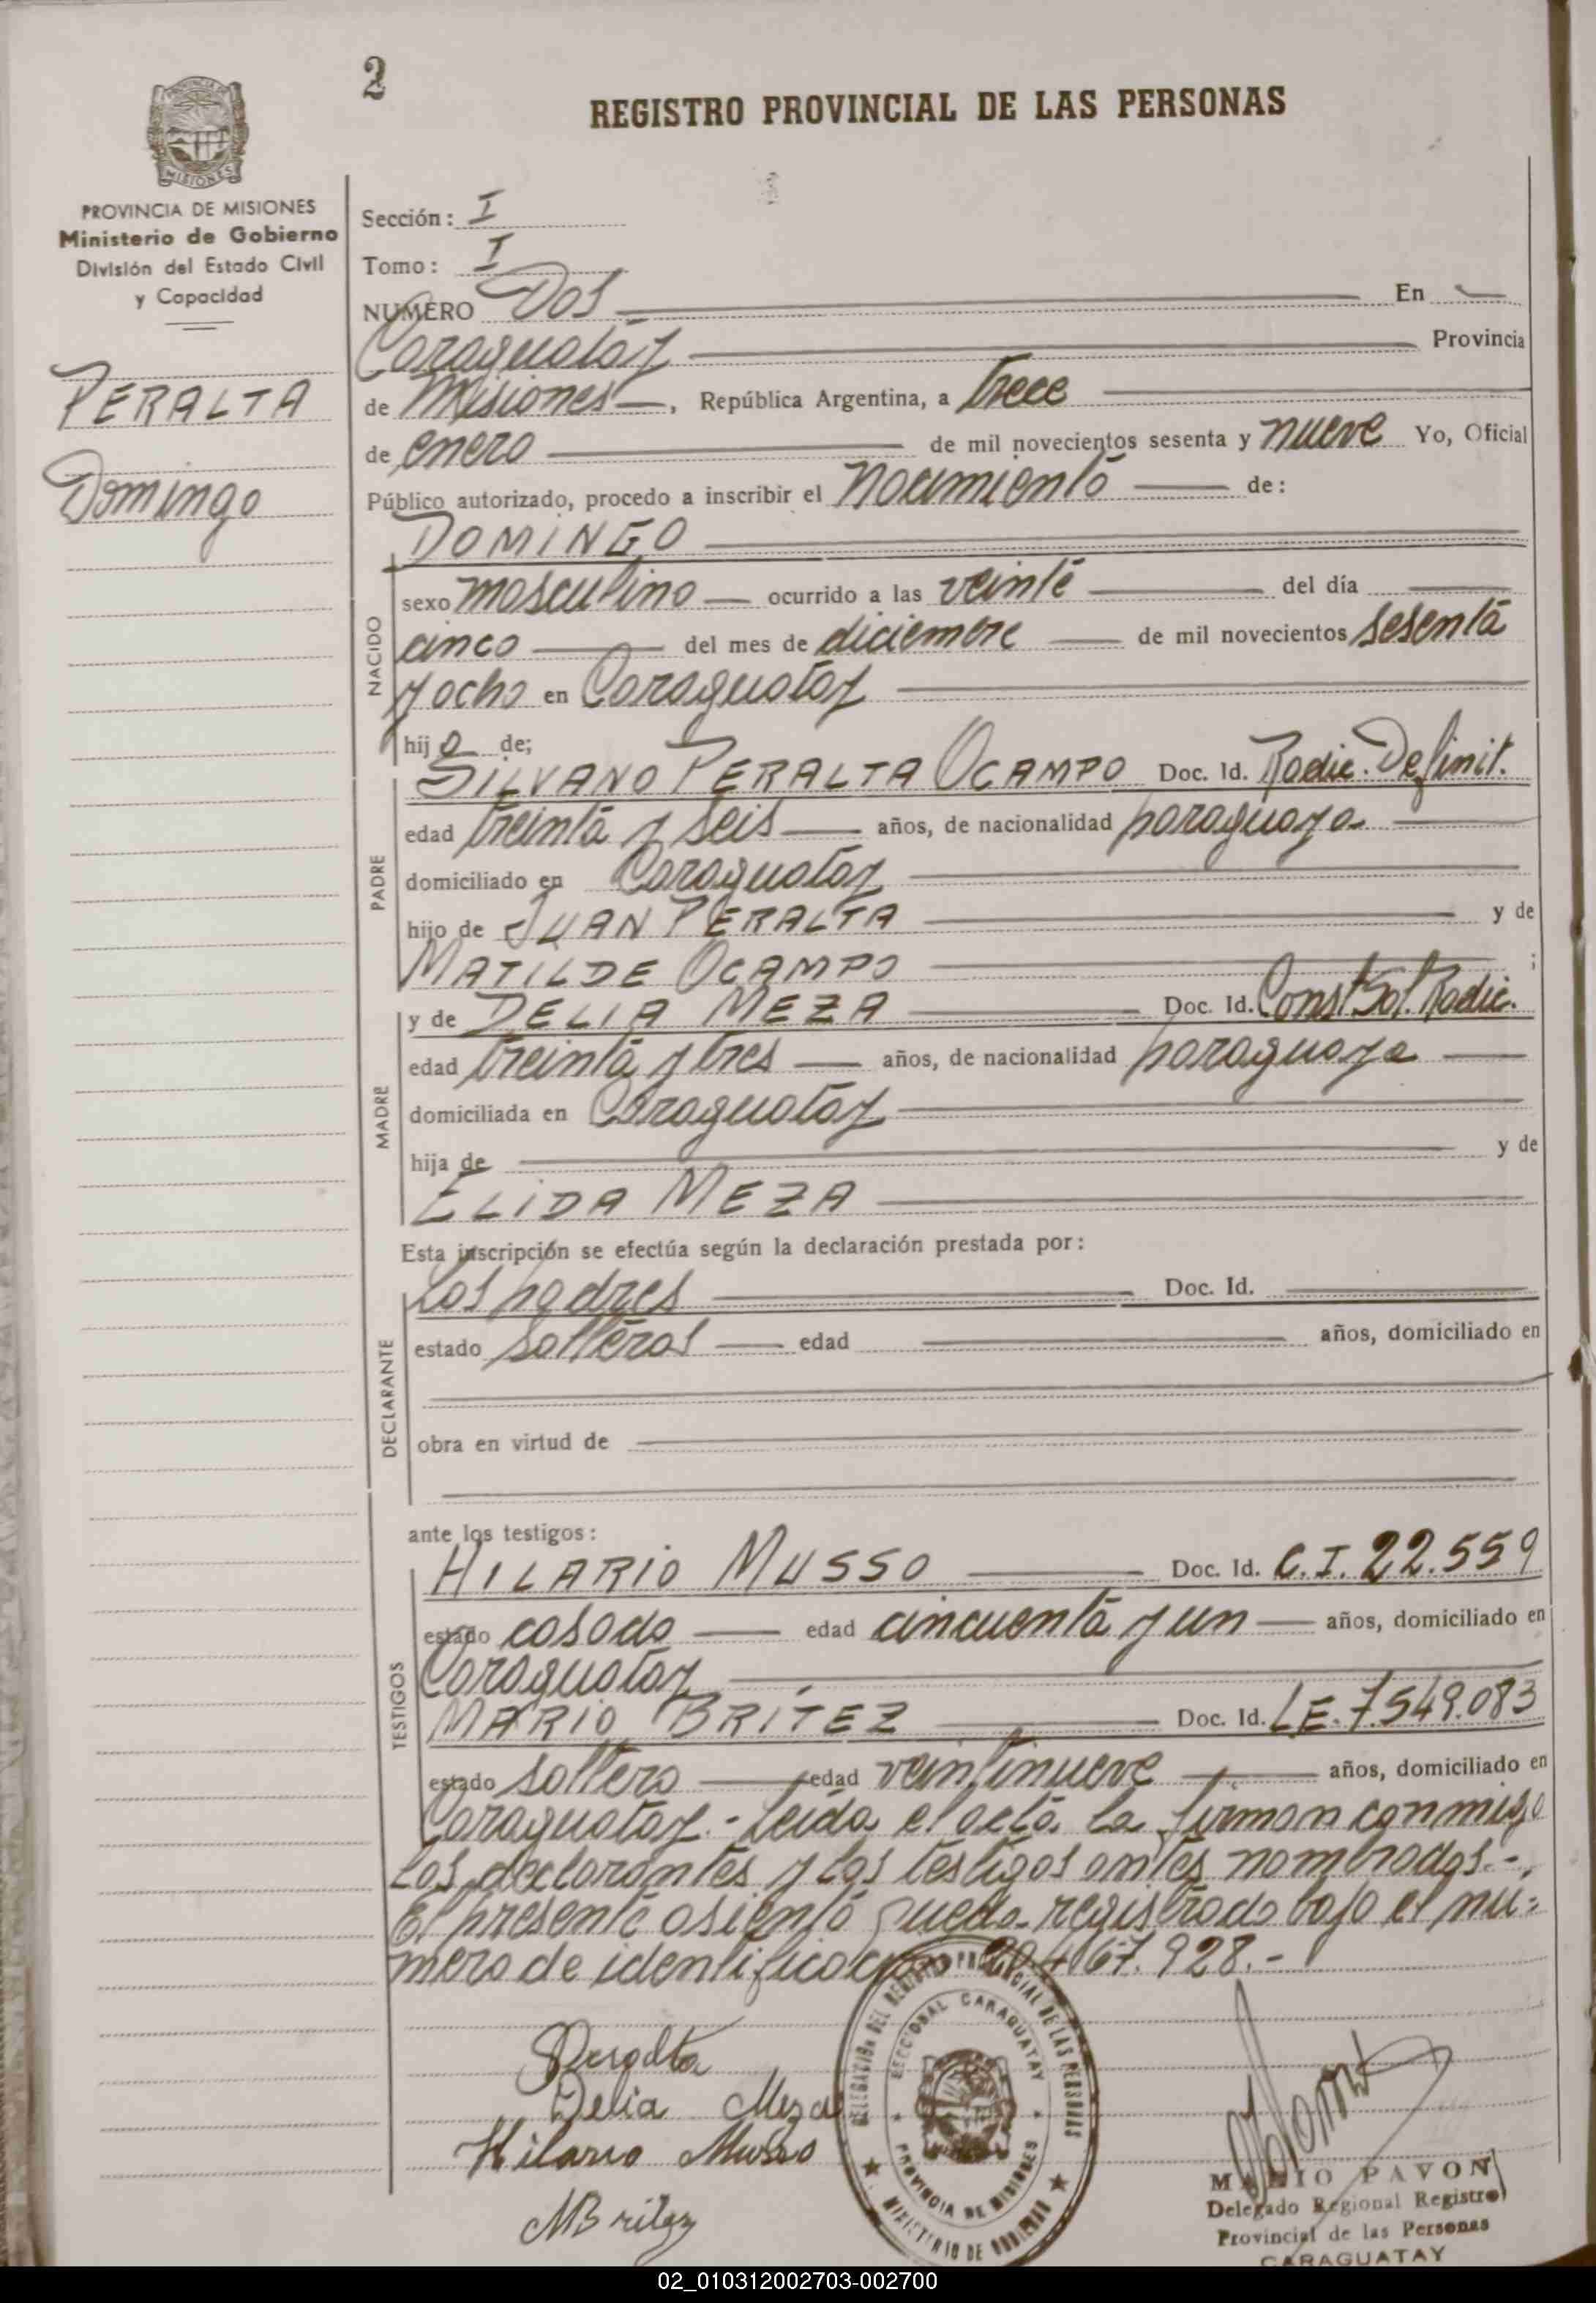 2
REGISTRO PROVINCIAL DE LAS PERSONAS
PROVINCIA DE MISIONES
Ministerio de Gobierno
División del Estado Civil
y Capacidad
PERALTA
Domingo
Sección: I
Tomo: I
NUMERO Dos En
Caraguatay Provincia
de Misiones, República Argentina, a trece
de enero de mil novecientos sesenta y nueve Yo, Oficial
Público autorizado, procedo a inscribir el nacimiento de:
DOMINGO
NACIDO
sexo masculino ocurrido a las veinte del día
cinco del mes de diciembre de mil novecientos sesenta
y ocho en Caraguatay
hijo de;
PADRE
SILVANO PERALTA OCAMPO Doc. Id. Radic. Definit.
edad treinta y seis años, de nacionalidad paraguaya
domiciliado en Caraguatay
hijo de JUAN PERALTA y de
MATILDE OCAMPO ;
MADRE
y de DELIA MEZA Doc. Id. Const. Sol. Radic.
edad treinta y tres años, de nacionalidad paraguaya
domiciliada en Caraguatay
hija de y de
ELIDA MEZA
Esta inscripción se efectúa según la declaración prestada por:
DECLARANTE
Los padres Doc. Id.
estado solteros edad años, domiciliado en
obra en virtud de
ante los testigos:
TESTIGOS
HILARIO MUSSO Doc. Id. C.I. 22.559
estado casado edad cincuenta y un años, domiciliado en
Caraguatay
MARIO BRÍTEZ Doc. Id. L.E. 7.549.083
estado soltero edad veintinueve años, domiciliado en
Caraguatay.- Leída el acta la firman conmigo
los declarantes y los testigos antes nombrados.-
El presente asiento queda registrado bajo el nú=
mero de identificación 20.467.928.-
Peralta
Delia Meza
Hilario Musso
MBritez
DELEGACION DEL REGISTRO PROVINCIAL DE LAS PERSONAS
SECCIONAL CARAGUATAY
PROVINCIA DE MISIONES
MINISTERIO DE GOBIERNO
MARIO PAVON
Delegado Regional Registro
Provincial de las Personas
CARAGUATAY
02_010312002703-002700